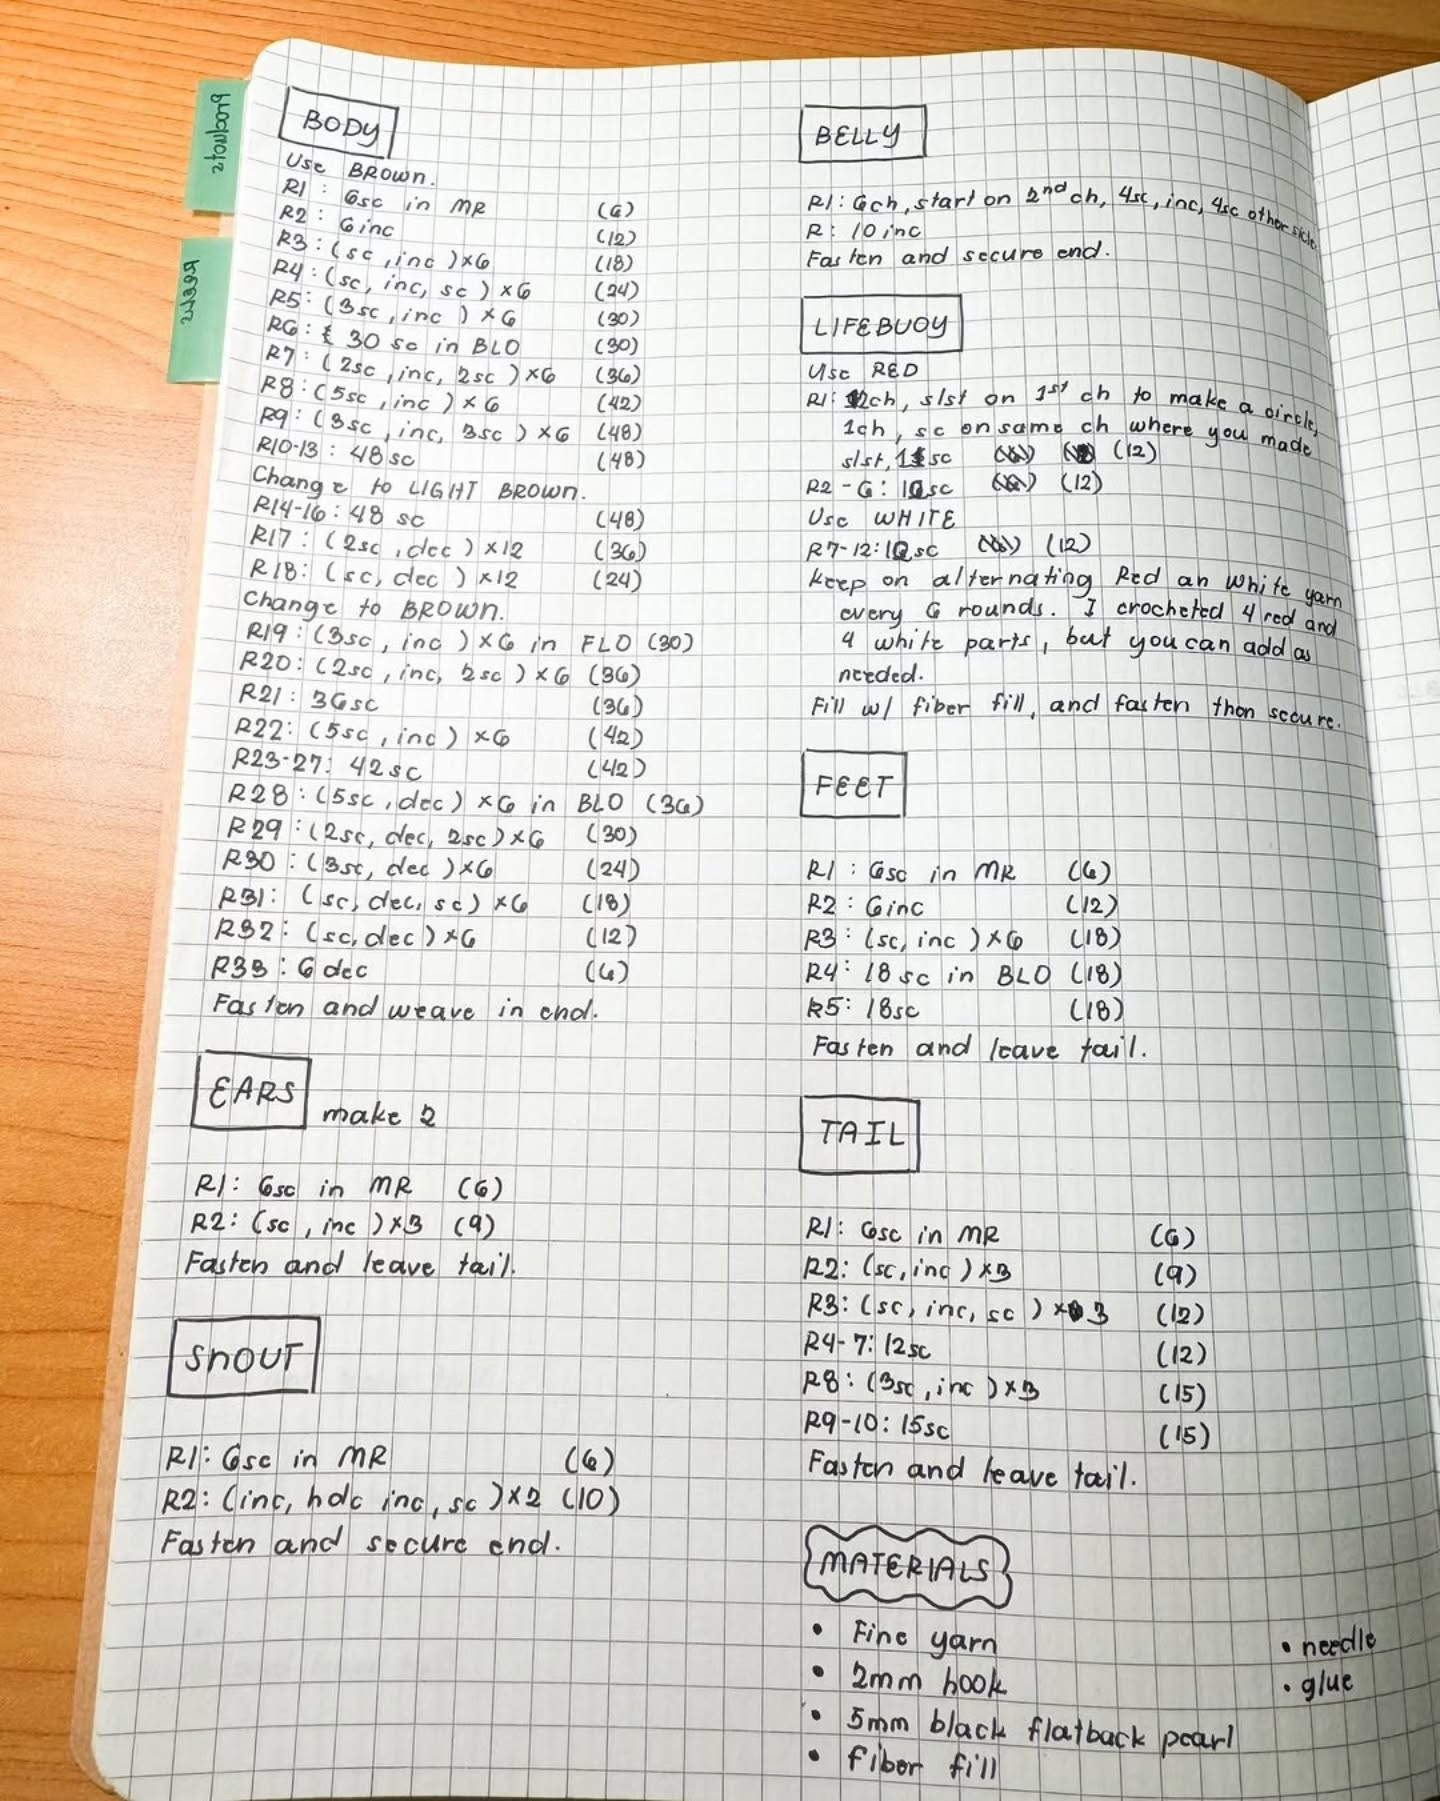 BODY
Use BROWN.
R1: 6sc in MR (6)
R2: 6inc (12)
R3: (sc, inc) ×6 (18)
R4: (sc, inc, sc) ×6 (24)
R5: (3sc, inc) ×6 (30)
R6: 30 sc in BLO (30)
R7: (2sc, inc, 2sc) ×6 (36)
R8: (5sc, inc) ×6 (42)
R9: (3sc, inc, 3sc) ×6 (48)
R10-13: 48sc (48)
Change to LIGHT BROWN.
R14-16: 48 sc (48)
R17: (2sc, dec) ×12 (36)
R18: (sc, dec) ×12 (24)
Change to BROWN.
R19: (3sc, inc) ×6 in FLO (30)
R20: (2sc, inc, 2sc) ×6 (36)
R21: 36sc (36)
R22: (5sc, inc) ×6 (42)
R23-27: 42sc (42)
R28: (5sc, dec) ×6 in BLO (36)
R29: (2sc, dec, 2sc) ×6 (30)
R30: (3sc, dec) ×6 (24)
R31: (sc, dec, sc) ×6 (18)
R32: (sc, dec) ×6 (12)
R33: 6 dec (6)
Fasten and weave in end.
EARS make 2
R1: 6sc in MR (6)
R2: (sc, inc) ×3 (9)
Fasten and leave tail.
SNOUT
R1: 6sc in MR (6)
R2: (inc, hdc inc, sc) ×2 (10)
Fasten and secure end.
BELLY
R1: 6ch, start on 2nd ch, 4sc, inc, 4sc other side.
R: 10 inc
Fasten and secure end.
LIFEBUOY
Use RED
R1: 12ch, slst on 1st ch to make a circle,
1ch, sc on same ch where you made
slst, 11sc (12)
R2-6: 12sc (12)
Use WHITE
R7-12: 12sc (12)
Keep on alternating Red an White yarn
every 6 rounds. I crocheted 4 red and
4 white parts, but you can add as
needed.
Fill w/ fiber fill, and fasten then secure.
FEET
R1: 6sc in MR (6)
R2: 6inc (12)
R3: (sc, inc) ×6 (18)
R4: 18 sc in BLO (18)
R5: 18sc (18)
Fasten and leave tail.
TAIL
R1: 6sc in MR (6)
R2: (sc, inc) ×3 (9)
R3: (sc, inc, sc) ×3 (12)
R4-7: 12sc (12)
R8: (3sc, inc) ×3 (15)
R9-10: 15sc (15)
Fasten and leave tail.
MATERIALS
• Fine yarn
• 2mm hook
• 5mm black flatback pearl
• fiber fill
• needle
• glue